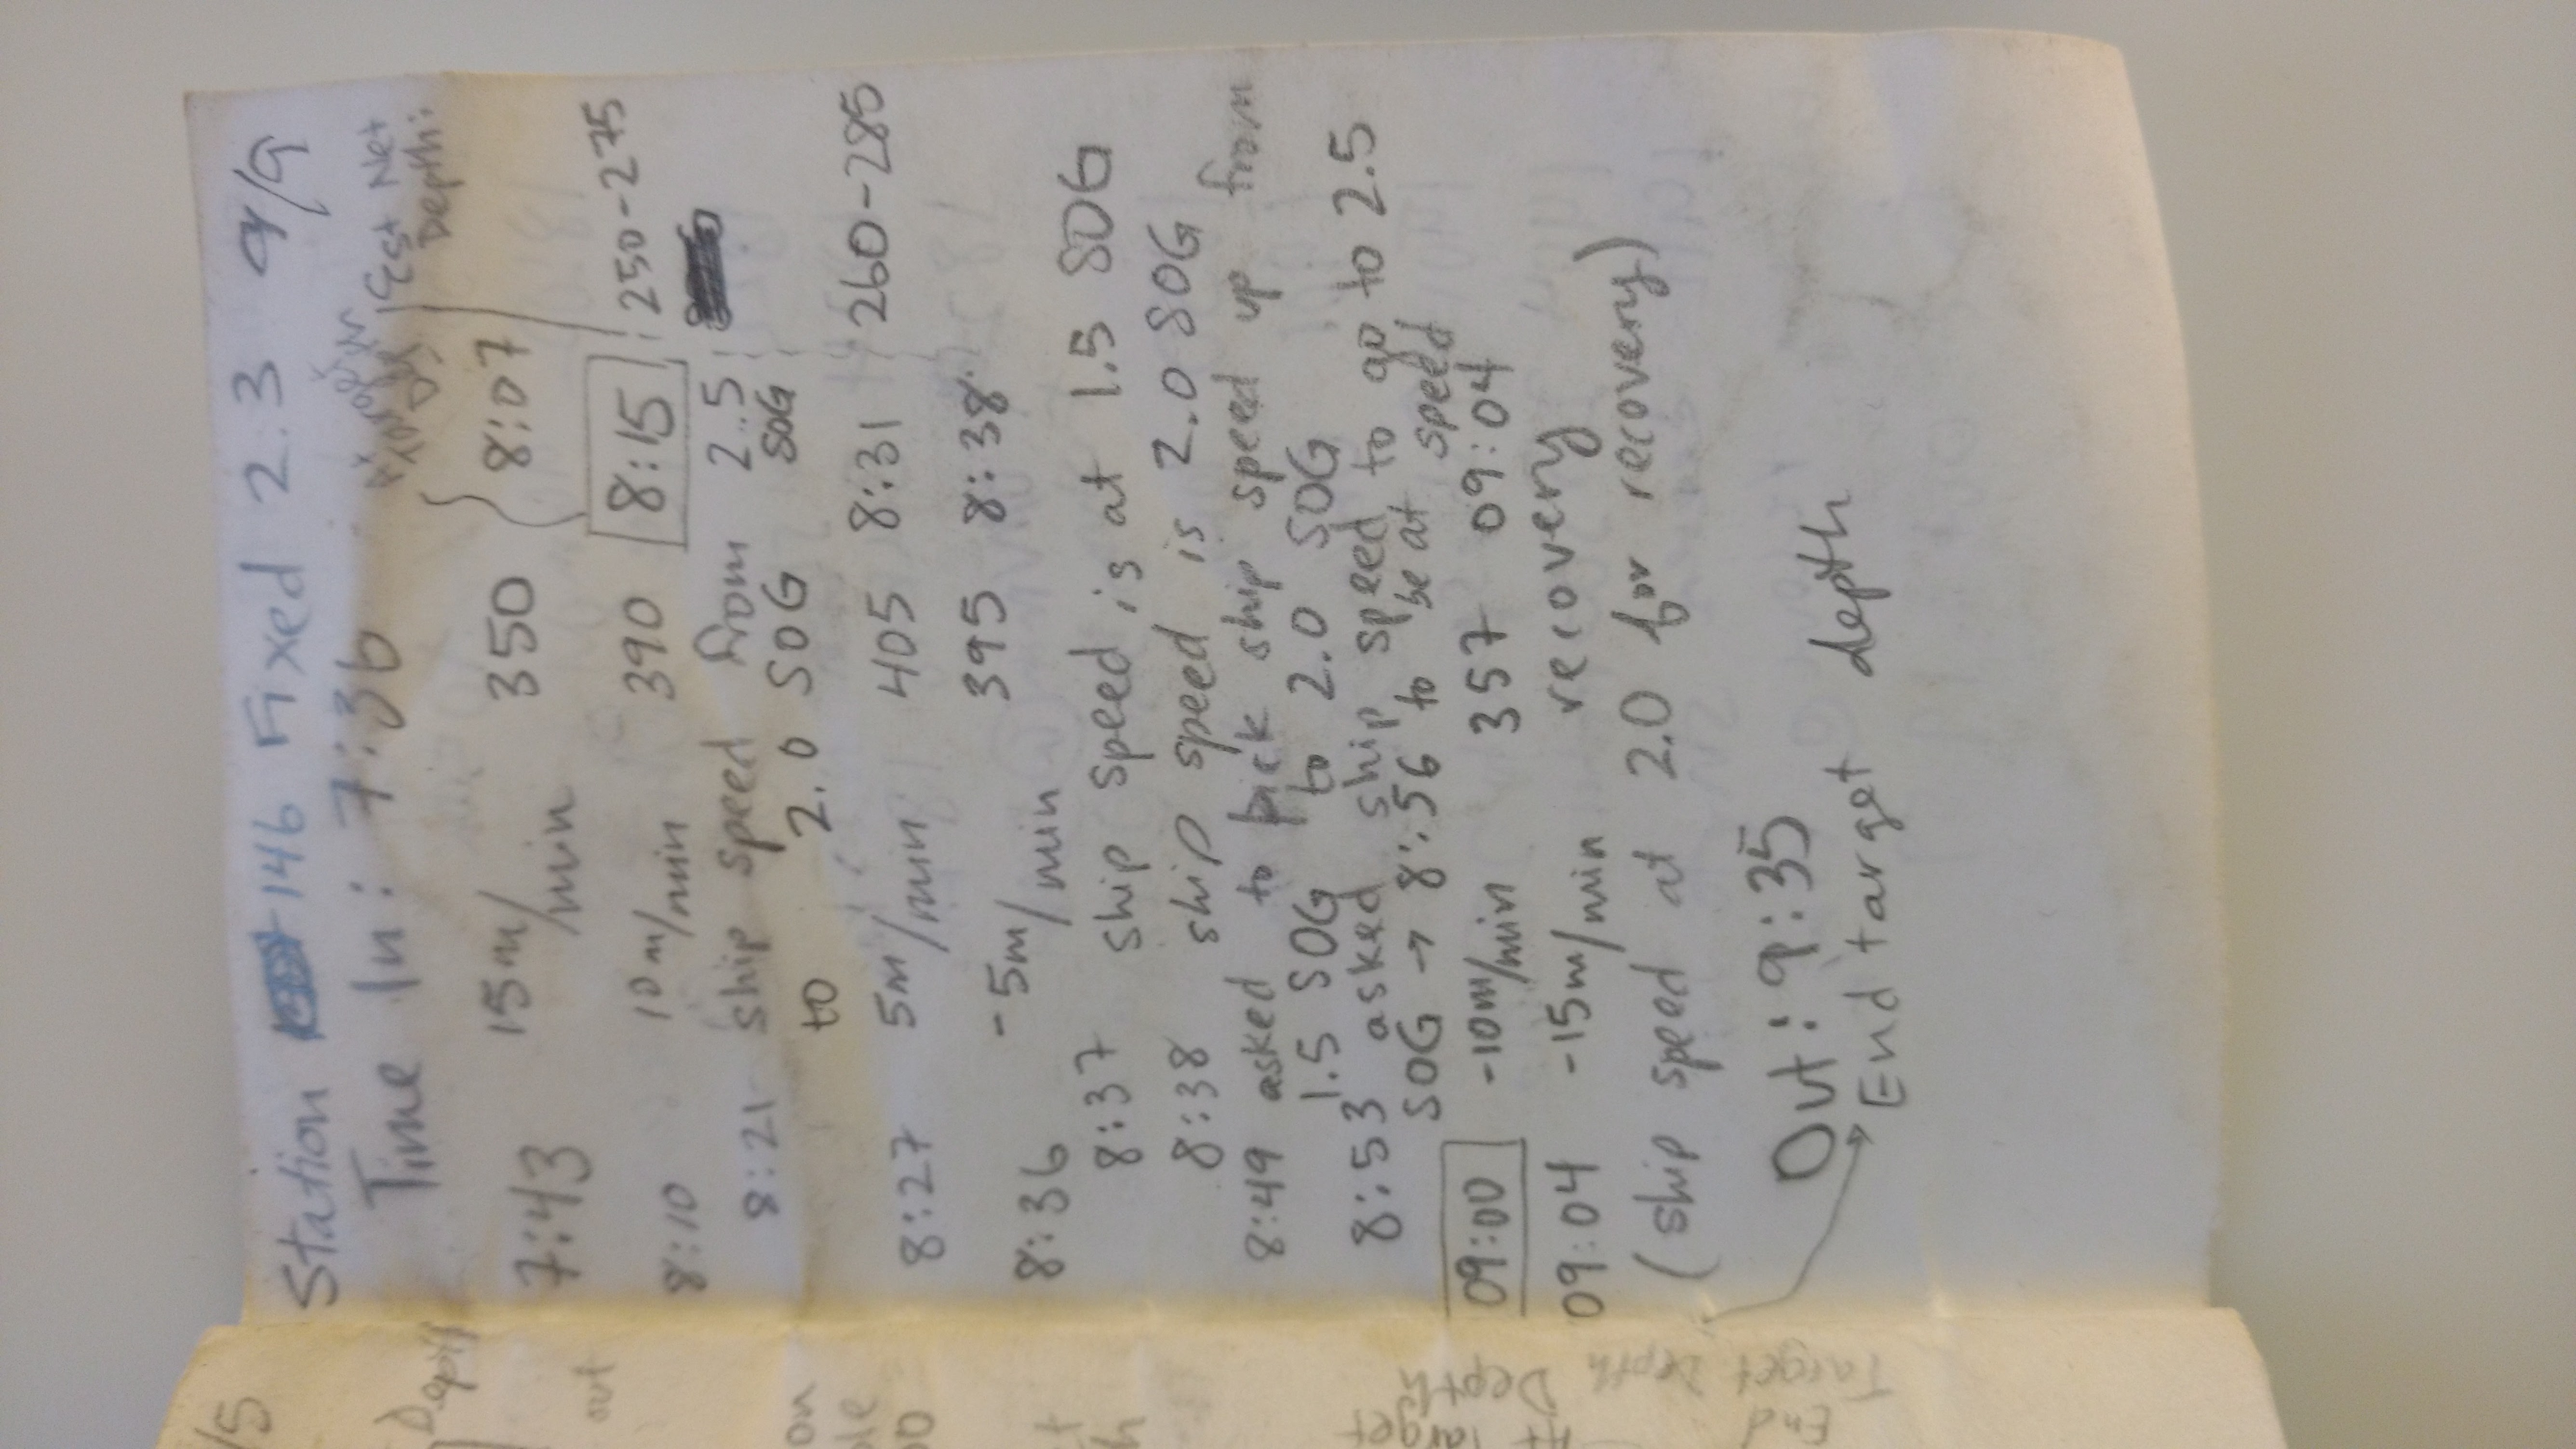 Station 146 Fixed 2.3 9/9
Time In: 7:36 Est Net
Depth:
7:43 15m/min 350 8:07
8:10 10m/min 390 8:15 250-275
8:21 ship speed from 2.5 SOG
to 2.0 SOG
8:27 5m/min 405 8:31 260-285
8:36 -5m/min 395 8:38
8:37 ship speed is at 1.5 SOG
8:38 ship speed is 2.0 SOG
8:49 asked to pick ship speed up from
1.5 SOG to 2.0 SOG
8:53 asked ship speed to go to 2.5
SOG → 8:56 to be at speed
09:00 -10m/min 357 09:04
09:04 -15m/min recovery
(ship speed at 2.0 for recovery)
Out: 9:35
End target depth
/5
Depth
out
End
Target Depth
Depth